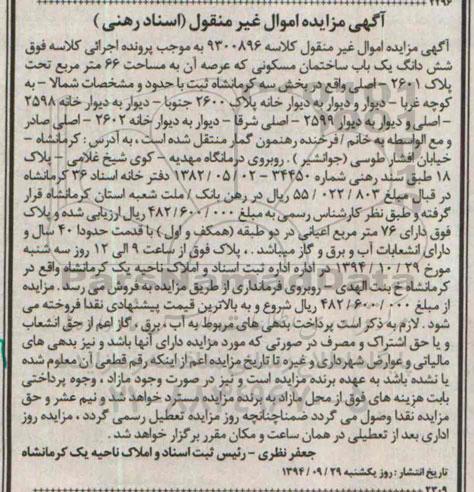 ۲۲۹۶
آگهی مزایده اموال غیر منقول (اسناد رهنی)
آگهی مزایده اموال غیر منقول کلاسه ۹۳۰۰۸۹۶ به موجب پرونده اجرائی کلاسه فوق
شش دانگ یک باب ساختمان مسکونی که عرصه آن به مساحت ۶۶ متر مربع تحت
پلاک ۲۶۰۱ – اصلی واقع در بخش سه کرمانشاه ثبت با حدود و مشخصات شمالا – به
کوچه غربا – دیوار و دیوار به دیوار خانه پلاک ۲۶۰۰ جنوبا – دیوار به دیوار خانه ۲۵۹۸
– اصلی و دیوار به دیوار ۲۵۹۹ – اصلی شرقا – دیوار به دیوار خانه ۲۶۰۲ – اصلی صادر
و مع الواسطه به خانم / فرخنده رهنمون گمار منتقل شده است ، به آدرس : کرمانشاه –
خیابان افشار طوسی (جوانشیر) . روبروی درمانگاه مهدیه – کوی شیخ غلامی – پلاک
۱۸ طبق سند رهنی شماره ۳۴۴۵۰ – ۰۲ / ۰۵ / ۱۳۸۲ دفتر خانه اسناد ۳۶ کرمانشاه
در قبال مبلغ ۸۰۳ / ۰۲۲ / ۵۵ ریال در رهن بانک / ملت شعبه استان کرمانشاه قرار
گرفته و طبق نظر کارشناس رسمی به مبلغ ۰۰۰ / ۶۰۰ / ۴۸۲ ریال ارزیابی شده و پلاک
فوق دارای ۷۶ متر مربع اعیانی در دو طبقه (همکف و اول) با قدمت حدودا ۴۰ سال و
دارای انشعابات آب و برق و گاز میباشد . ، پلاک فوق از ساعت ۹ الی ۱۲ روز سه شنبه
مورخ ۲۹ / ۱۰ / ۱۳۹۴ در اداره اداره ثبت اسناد و املاک ناحیه یک کرمانشاه واقع در
کرمانشاه خ بنت الهدی – روبروی فرمانداری از طریق مزایده به فروش می رسد . مزایده
از مبلغ ۰۰۰ / ۶۰۰ / ۴۸۲ ریال شروع و به بالاترین قیمت پیشنهادی نقدا فروخته می
شود . لازم به ذکر است پرداخت بدهی های مربوط به آب ، برق ، گاز اعم از حق انشعاب
و یا حق اشتراک و مصرف در صورتی که مورد مزایده دارای آنها باشد و نیز بدهی های
مالیاتی و عوارض شهرداری و غیره تا تاریخ مزایده اعم از اینکه رقم قطعی آن معلوم شده
یا نشده باشد به عهده برنده مزایده است و نیز در صورت وجود مازاد ، وجوه پرداختی
بابت هزینه های فوق از محل مازاد به برنده مزایده مسترد خواهد شد و نیم عشر و حق
مزایده نقدا وصول می گردد ضمنا چنانچه روز مزایده تعطیل رسمی گردد ، مزایده روز
اداری بعد از تعطیلی در همان ساعت و مکان مقرر برگزار خواهد شد .
جعفر نظری – رئیس ثبت اسناد و املاک ناحیه یک کرمانشاه
تاریخ انتشار : روز یکشنبه ۲۹ / ۰۹ / ۱۳۹۴
۲۳۰۹